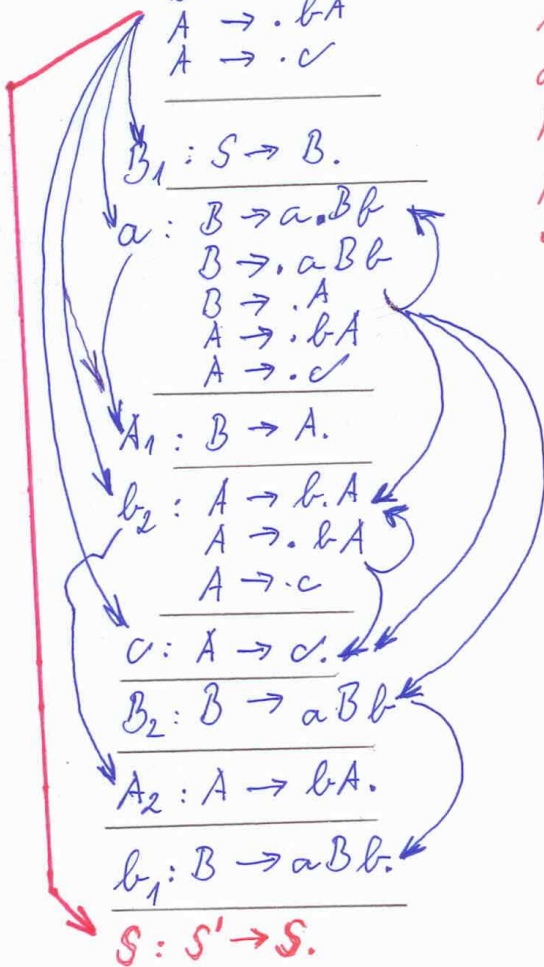 A → . bA
A → . c
B1 : S → B.
a : B → a.Bb
B → . aBb
B → . A
A → . bA
A → . c
A1 : B → A.
b2 : A → b.A
A → . bA
A → . c
c : A → c.
B2 : B → aBb
A2 : A → bA.
b1 : B → aBb.
S : S' → S.